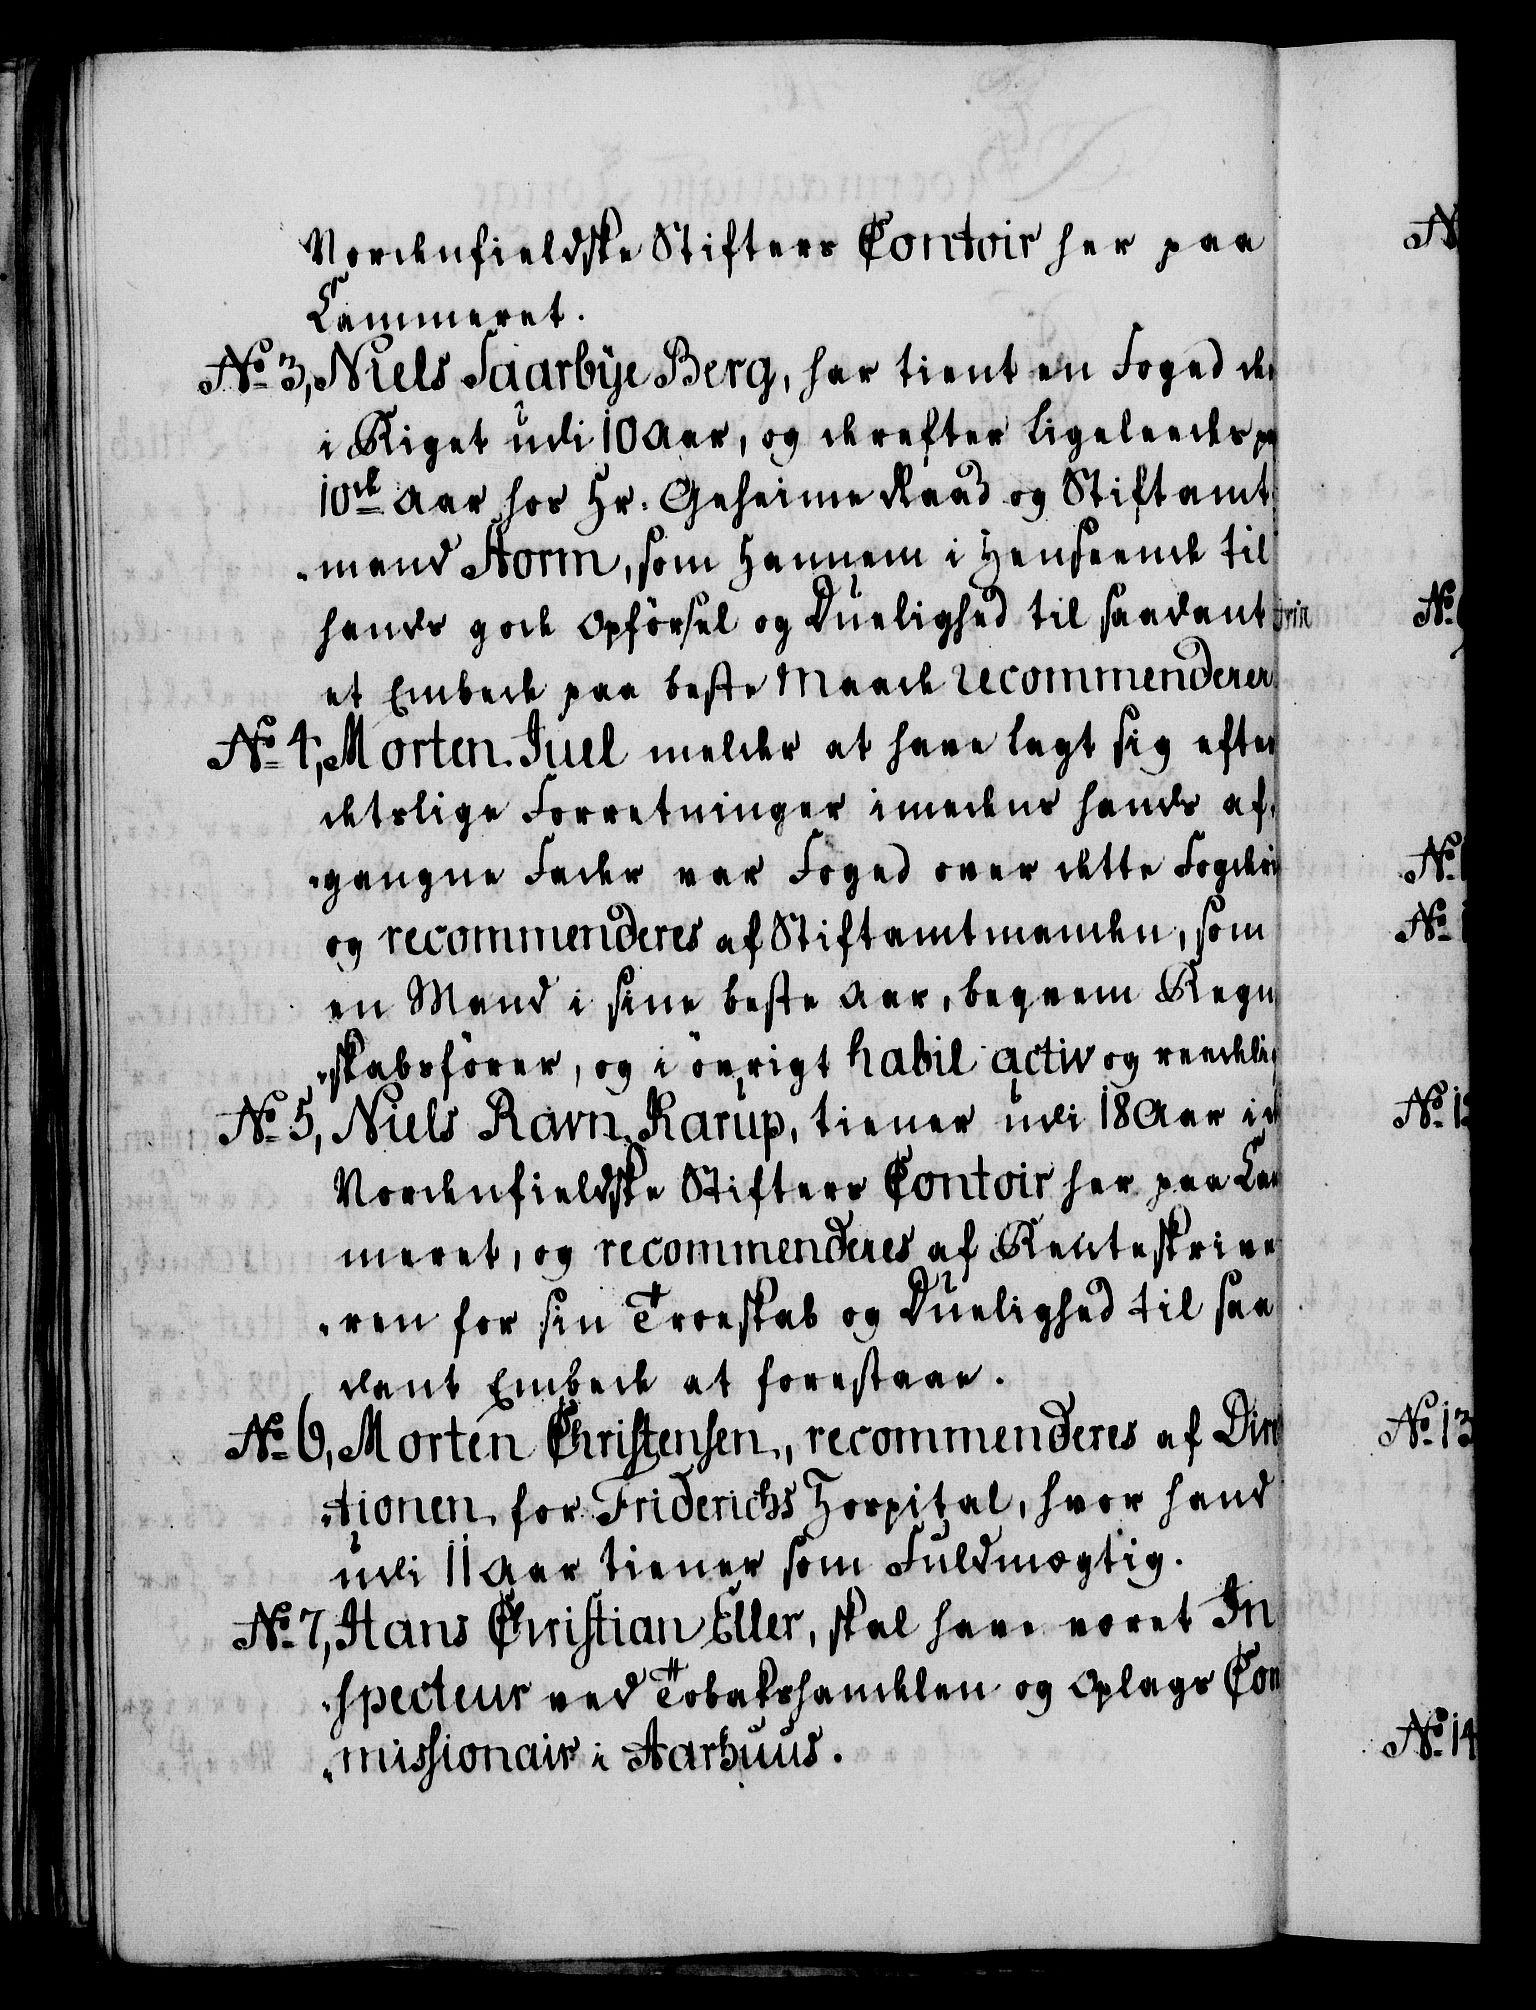 Nordenfieldske Stifters Contoir her paa
Cammeret.
No 3, Niels Saarbÿe Berg, har tient en Foged der
i Riget udi 10 Aar, og derefter ligeleedes paa
10de Aar hos Hr. Geheime Raad og Stiftamt¬
mand Storm, som hannem i Henseende til
hands gode Opförsel og Duelighed til saadant
et Embede paa beste Maade recommenderer
No 4, Morten Juel melder at have lagt sig efter
detslige Forretninger imedens hands af¬
gangne Fader var Foged over dette Fogderi
og recommenderes af Stiftamtmanden, som
en Mand i sine beste Aar, beqvem Regn
skabsförer, og i övrigt habil activ og reedelig
No 5, Niels Ravn Karup, tiener udi 18 Aar i
Nordenfieldske Stifters Contoir her paa Cam
meret, og recommenderes af Renteskrive
ren for sin Troeskab og Duelighed til saa
dant Embede at forestaae.
No 6, Morten Christensen, recommenderes af Direc
tionen for Friderichs Hospital, hvor hand
udi 11 Aar tiener som Fuldmægtig.
No 7, Hans Christian Eller, skal have været In
specteur ved Tobakshandelen og Oplags Com
missionair i Aarhuus.
No
No
No
No 13
No 14